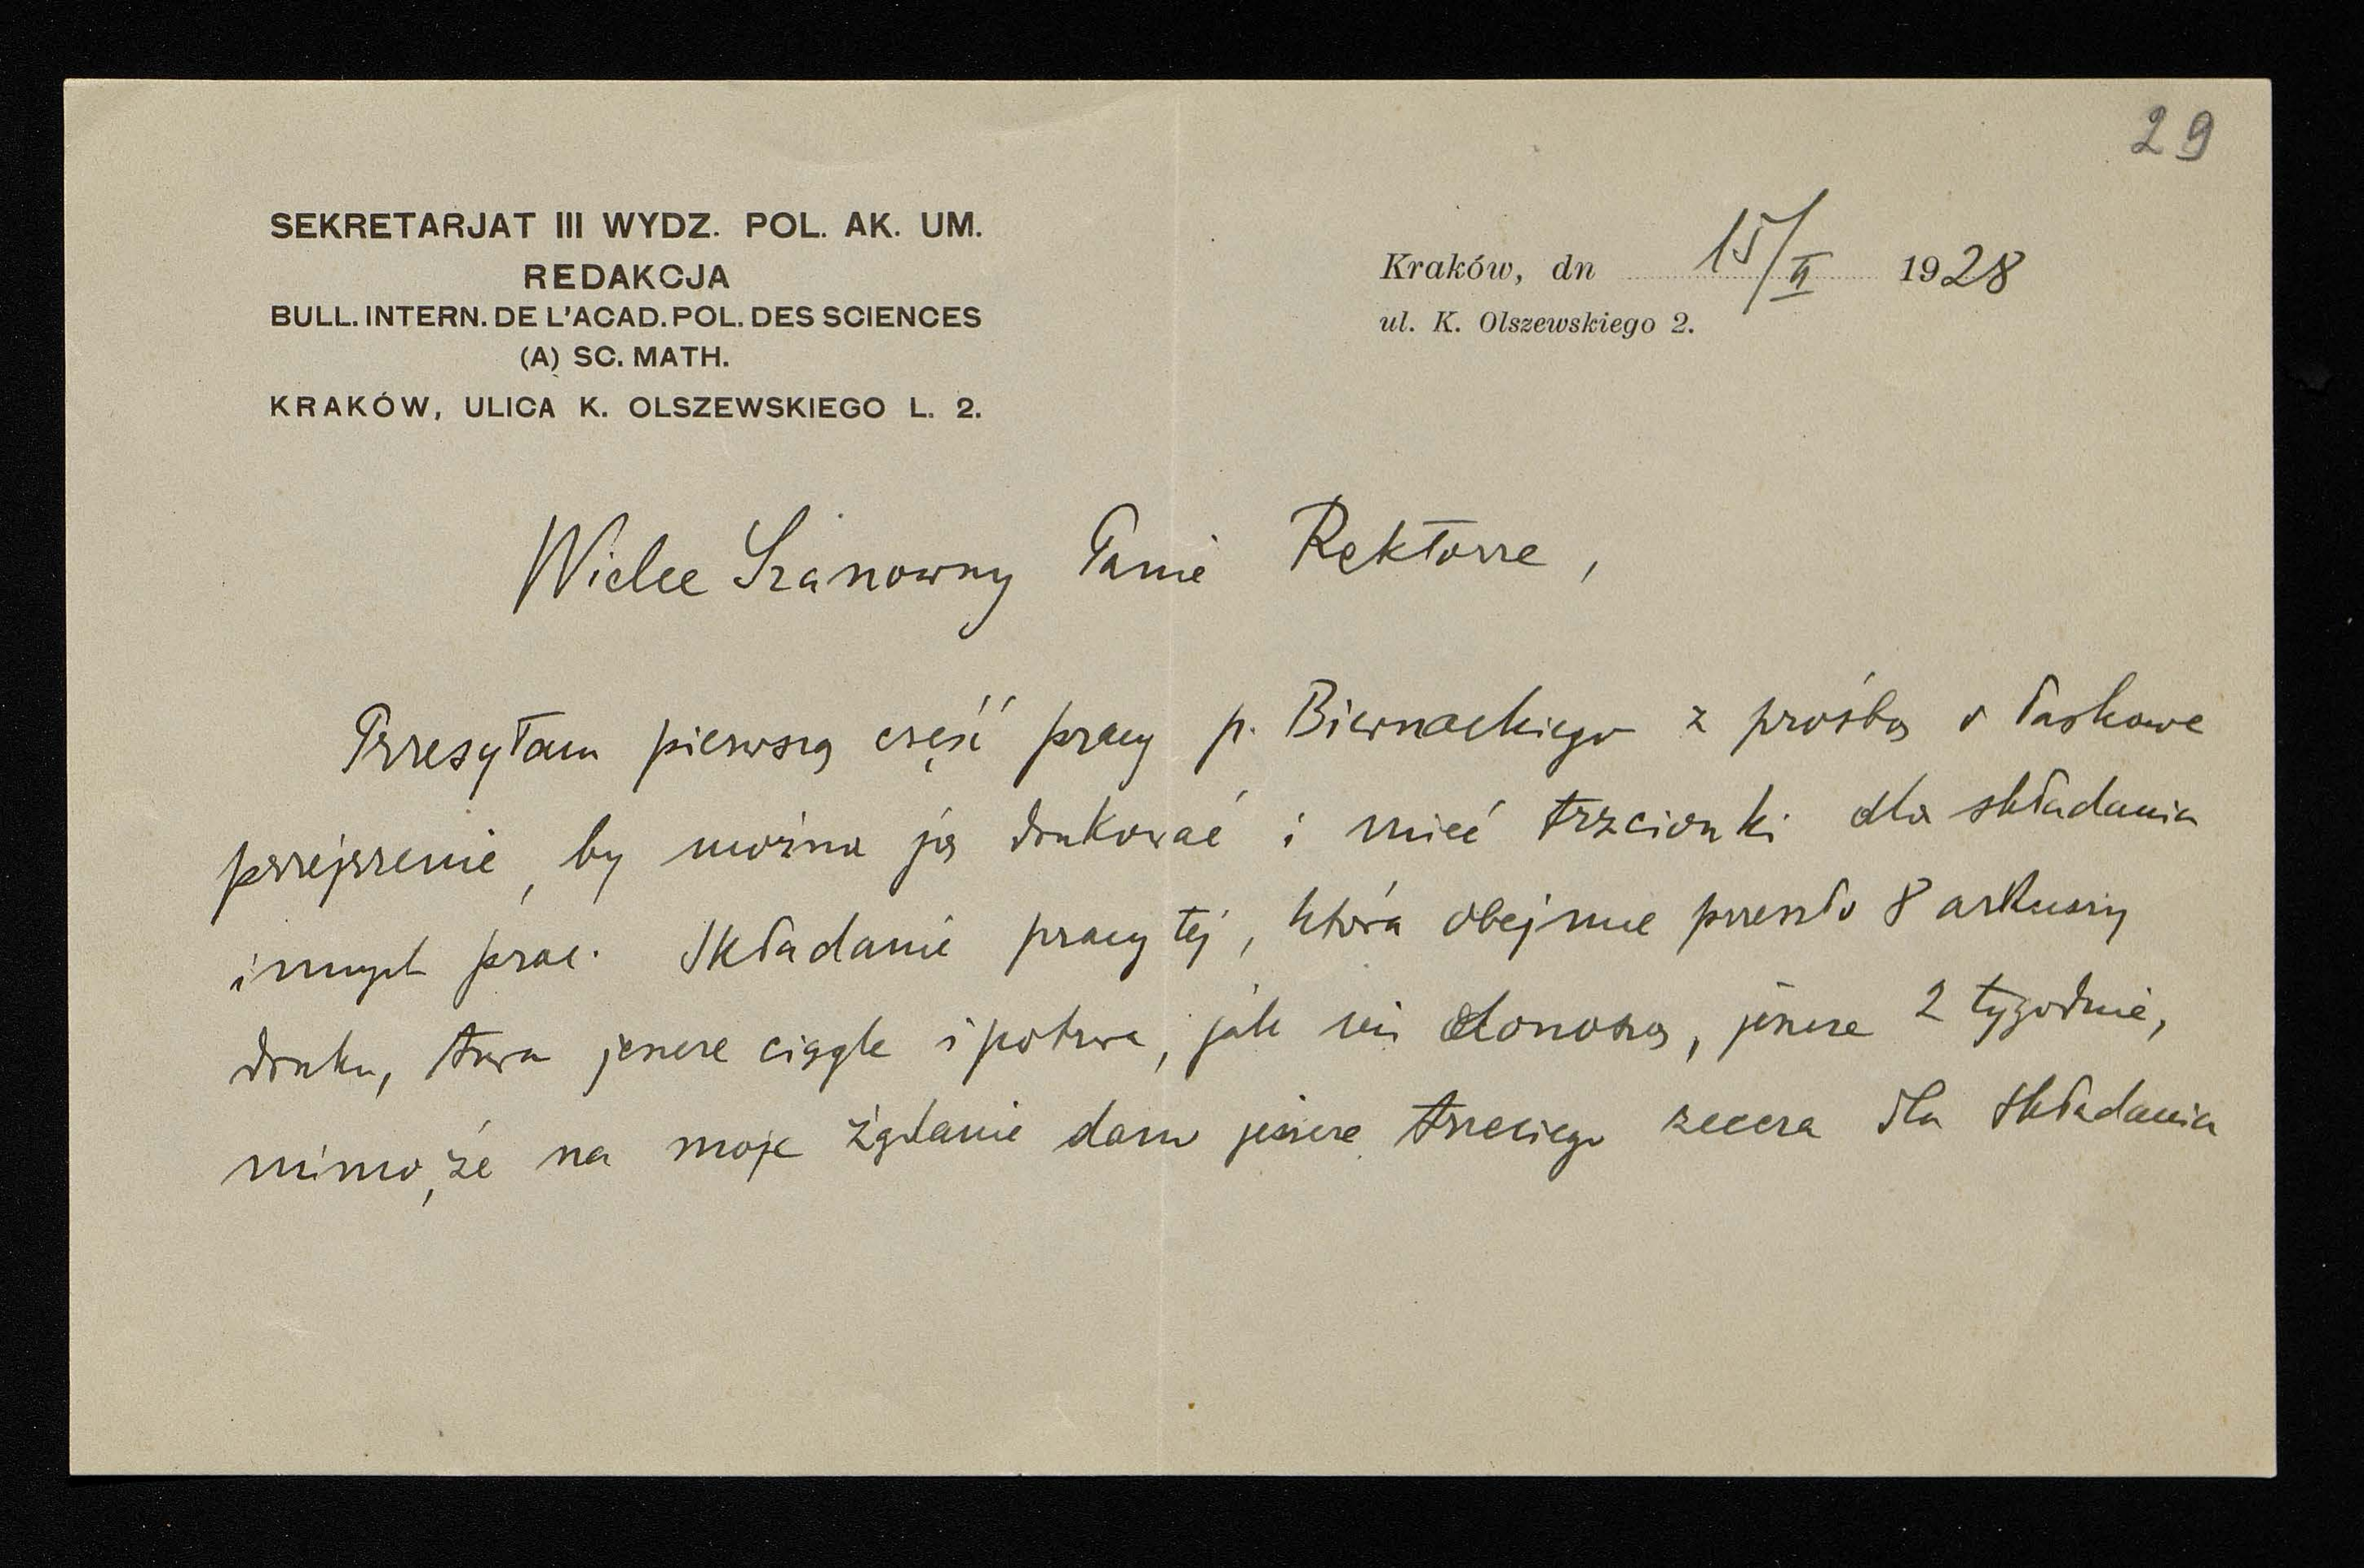 29
SEKRETARJAT III WYDZ. POL. AK. UM.
REDAKCJA
BULL. INTERN. DE L'ACAD. POL. DES SCIENCES
(A) SC. MATH.
KRAKÓW, ULICA K. OLSZEWSKIEGO L. 2.
Kraków, dn 15/II 1928
ul. K. Olszewskiego 2.
Wielce Szanowny Panie Rektorze,
Przesyłam pierwszą część pracy p. Biernackiego z prośbą o łaskawe
przejrzenie, by można ją drukować i mieć trzcionki dla składania
innych prac. Składanie pracy tej, która obejmie przeszło 8 arkuszy
druku, trwa jeszcze ciągle i potrwa, jak mi donoszą, jeszcze 2 tygodnie,
mimo, że na moje żądanie dano jeszcze trzeciego zecera dla składania